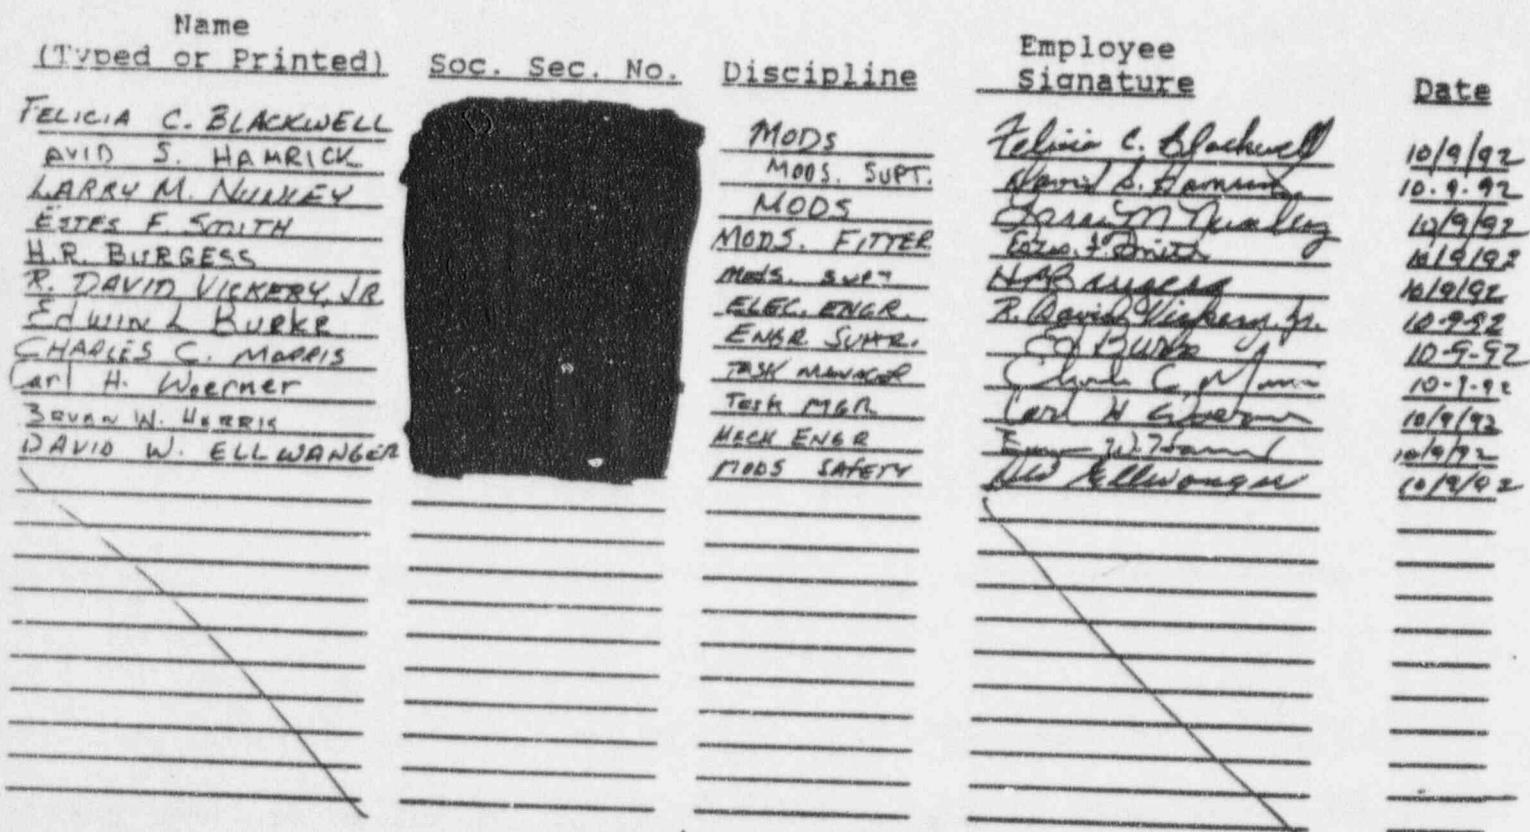 Name Employee
(Typed or Printed) Soc. Sec. No. Discipline Signature Date
FELICIA C. BLACKWELL MODS Felicia C. Blackwell 10/9/92
AVID S. HAMRICK MODS. SUPT. David S. Hamrick 10.9.92
LARRY M. NUNLEY MODS Larry M Nunley 10/9/92
ESTES F. SMITH MODS. FITTER Estes F Smith 10/9/92
H.R. BURGESS MODS. SUPT HR Burgess 10/9/92
R. DAVID VICKERY, JR ELEC. ENGR. R. David Vickery, Jr. 10-9-92
Edwin L BURKE ENGR SUPR. Ed Burke 10-9-92
CHARLES C. MORRIS TASK MANAGER Charles C. Morris 10-9-92
Carl H. Woerner TASK MGR Carl H Woerner 10/9/92
W. HARRIS MECH ENGR 10/9/92
DAVID W. ELLWANGER MODS SAFETY DW Ellwanger 10/9/92